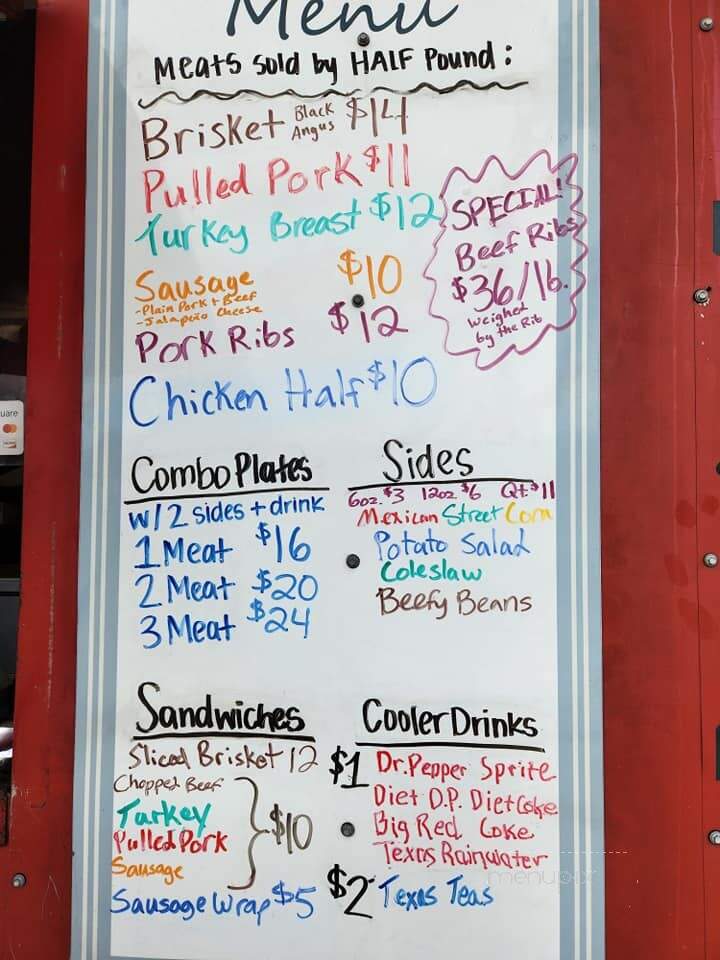 Menu
Meats sold by HALF Pound:
Brisket Black Angus $14
Pulled Pork $11
Turkey Breast $12
Sausage $10
-Plain Pork + Beef
-Jalapeño Cheese
Pork Ribs $12
Chicken Half $10
SPECIAL!
Beef Ribs
$36/lb.
weighed
by the Rib
uare
Combo Plates
w/2 sides + drink
1 Meat $16
2 Meat $20
3 Meat $24
Sides
6oz. $3 12oz $6 Qt. $11
Mexican Street Corn
Potato Salad
Coleslaw
Beefy Beans
Sandwiches
Sliced Brisket 12
Chopped Beef
Turkey
Pulled Pork
Sausage
$10
Sausage Wrap $5
Cooler Drinks
$1 Dr. Pepper Sprite
Diet D.P. Diet Coke
Big Red Coke
Texas Rainwater
$2 Texas Teas
menupix